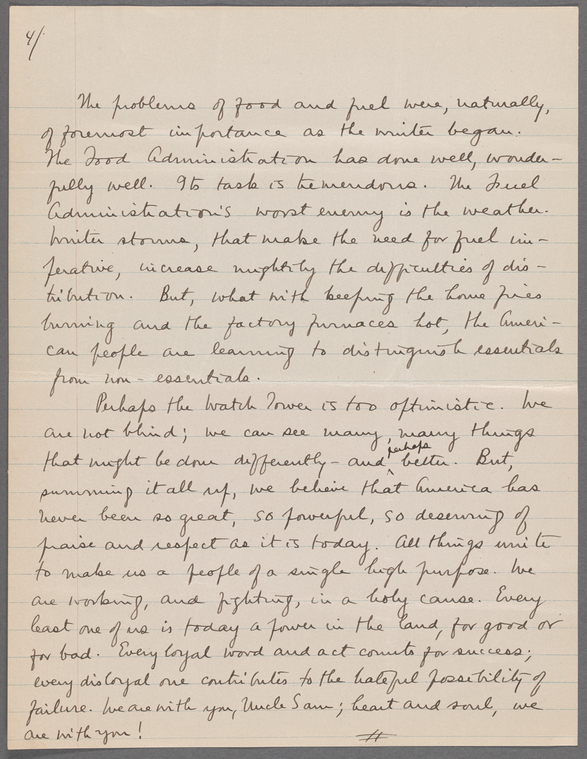 4/
The problems of food and fuel were, naturally,
of foremost importance as the winter began.
The Food Administration has done well, wonder-
fully well. Its task is tremendous. The Fuel
Administration's worst enemy is the weather.
Winter storms, that make the need for fuel im-
perative, increase mightily the difficulties of dis-
tribution. But, what with keeping the home fires
burning and the factory furnaces hot, the Ameri-
can people are learning to distinguish essentials
from non-essentials.
Perhaps the Watch Tower is too optimistic. We
are not blind; we can see many, many things
that might be done differently - and perhaps better. But,
summing it all up, we believe that America has
never been so great, so powerful, so deserving of
praise and respect as it is today. All things unite
to make us a people of a single high purpose. We
are working, and fighting, in a holy cause. Every
least one of us is today a power in the land, for good or
for bad. Every loyal word and act counts for success;
every disloyal one contributes to the hateful possibility of
failure. We are with you, Uncle Sam; heart and soul, we
are with you!
#